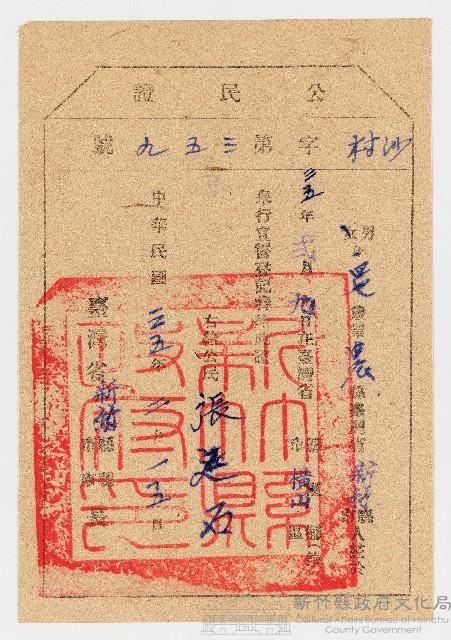 公民證
沙村字第三五九號
男女
歲職業農
新竹縣
人在於
三五年弍月九日在臺灣省
縣市橫山鄉鎮區
舉行宣誓登記特給此證
右給公民張廷石
中華民國三五年二月一五日
臺灣省新竹縣市
新竹縣政府文化局
Cultural Affairs Bureau of Hsinchu
County Government